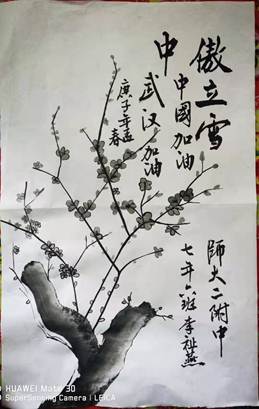 傲立雪
中
中國加油
武汉加油
庚子年
春
師大二附中
七年六班李祉燕
HUAWEI Mate 30
SuperSensing Camera | LEICA